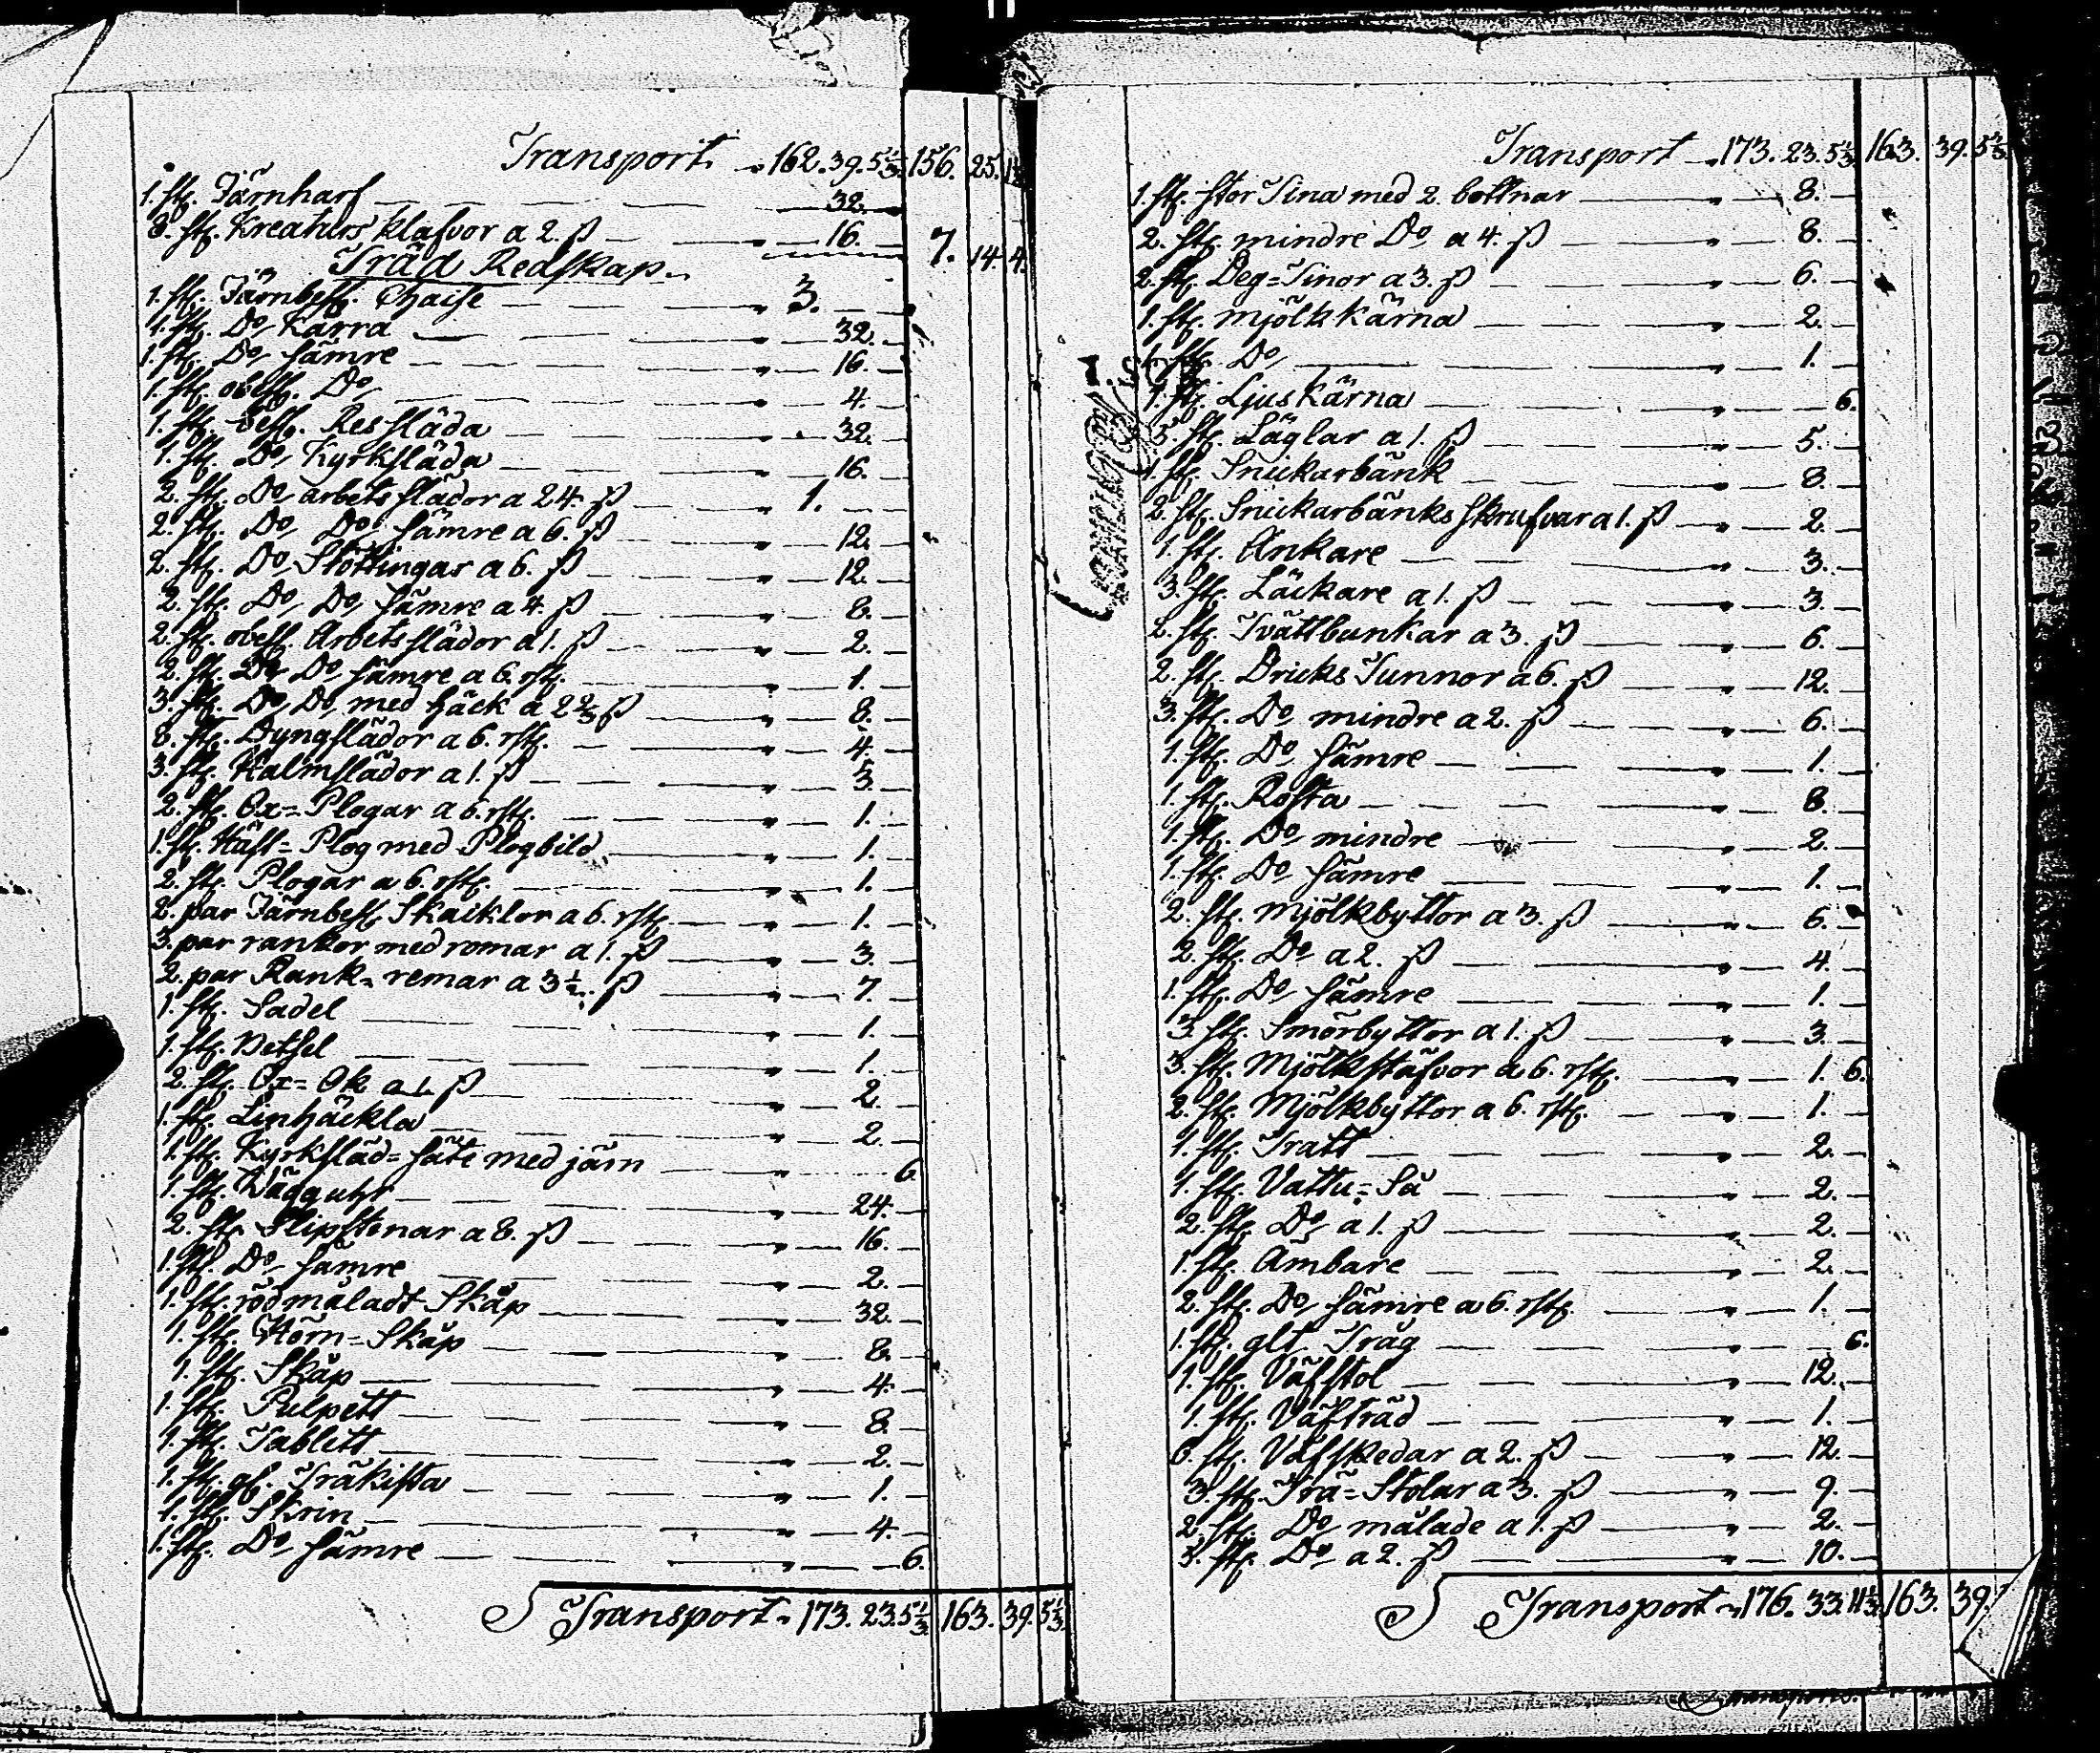 Transport „ 162. 39. 5⅓. 156. 25. 1⅓
1. st. Järnharf 32.
8. st. Kreaturs klafvor a 2. ß 16. 7. 14. 4.
Träd Redskap.
1. st. Järnbesl. Chaise „ 3.
1. st. Do Kärra „ 32.
1. st. Do sämre „ 16.
1. st. obesl. Do „ 4.
1. st. besl. Ressläda „ 32.
1. st. Do Kyrksläda „ 16.
2. st. Do arbets slädor a 24. ß „ 1.
2. st. Do Do sämre a 6. ß „ 12.
2. st. Do Stöttingar a 6. ß „ 12.
2. st. Do Do sämre a 4. ß „ 8.
2. st. obesl. Arbets slädor a 1. ß „ 2.
2. st. Do Do sämre a 6. rst. „ 1.
3. st. Do Do med häck a 2⅔ ß „ 8.
8. st. Dyngslädor a 6. rst. „ 4.
3. st. Halmslädor a 1. ß „ 3.
2. st. Ox= Plogar a 6. rst. „ 1.
1. st. Häst= Plog med Plogbild „ 1.
2. st. Plogar a 6. rst. „ 1.
2. par Järnbesl. Skacklor a 6. rst. „ 1.
3. par rankor med romar a 1. ß „ 3.
2. par Rank= remar a 3½. ß „ 7.
1. st. Sadel „ 1.
1. st. Betsel „ 1.
2. st. Ox= Ok a 1. ß „ 2.
1. st. Linhäckla „ 2.
1. st. Kyrksläd= säte med järn „ 6.
1. st. Wägguhr „ 24.
2. st. Slipstenar a 8. ß „ 16.
1. st. Do sämre „ 2.
1. st. rödmåladt Skåp „ 32.
1. st. Hörn= Skåp „ 8.
1. st. Skåp „ 4.
1. st. Pulpett „ 8.
1. st. Tablett „ 2.
1. st. gl. Träkista „ 1.
1. st. Skrin „ 4.
1. st. Do sämre „ 6.
Transport „ 173. 23. 5⅓. 163. 39. 5⅓.
Transport „ 173. 23. 5⅓ 163. 39. 5⅓
1. st. stor Tina med 2. bottnar „ 8.
2. st. mindre Do a 4. ß „ 8.
2. st. Deg= Tinor a 3. ß „ 6.
1. st. mjölkkärna „ 2.
1. st. Do „ 1.
1. st. Ljuskärna „ 6.
5. st. Läglar a 1. ß „ 5.
1. st. Snickarbänk „ 8.
2. st. Snickarbänks skrufvar a 1. ß „ 2.
1. st. Ankare „ 3.
3. st. Läckare a 1. ß „ 3.
2. st. Tvättbunkar a 3. ß „ 6.
2. st. Dricks Tunnor a 6. ß „ 12.
3. st. Do mindre a 2. ß „ 6.
1. st. Do sämre „ 1.
1. st. Rosta „ 8.
1. st. Do mindre „ 2.
1. st. Do sämre „ 1.
2. st. Mjölkbyttor a 3. ß „ 6.
2. st. Do a 2. ß „ 4.
1. st. Do sämre „ 1.
3. st. Smörbyttor a 1. ß „ 3.
3. st. Mjölkstäfvor a 6. rst. „ 1. 6.
2. st. Mjölkbyttor a 6. rst. „ 1.
1. st. Tratt „ 2.
1. st. Vattu= Så „ 2.
2. st. Do a 1. ß „ 2.
1. st. Ämbare „ 2.
2. st. Do sämre a 6. rst. „ 1.
1. st. glt. Tråg „ 6.
1. st. Väfstol „ 12.
1. st. Väfträd „ 1.
6. st. Väfskedar a 2. ß „ 12.
3. st. Trä= Stolar a 3. ß „ 9.
2. st. Do målade a 1. ß „ 2.
5. st. Do a 2. ß „ 10.
Transport „ 176. 33. 11⅓. 163. 39.